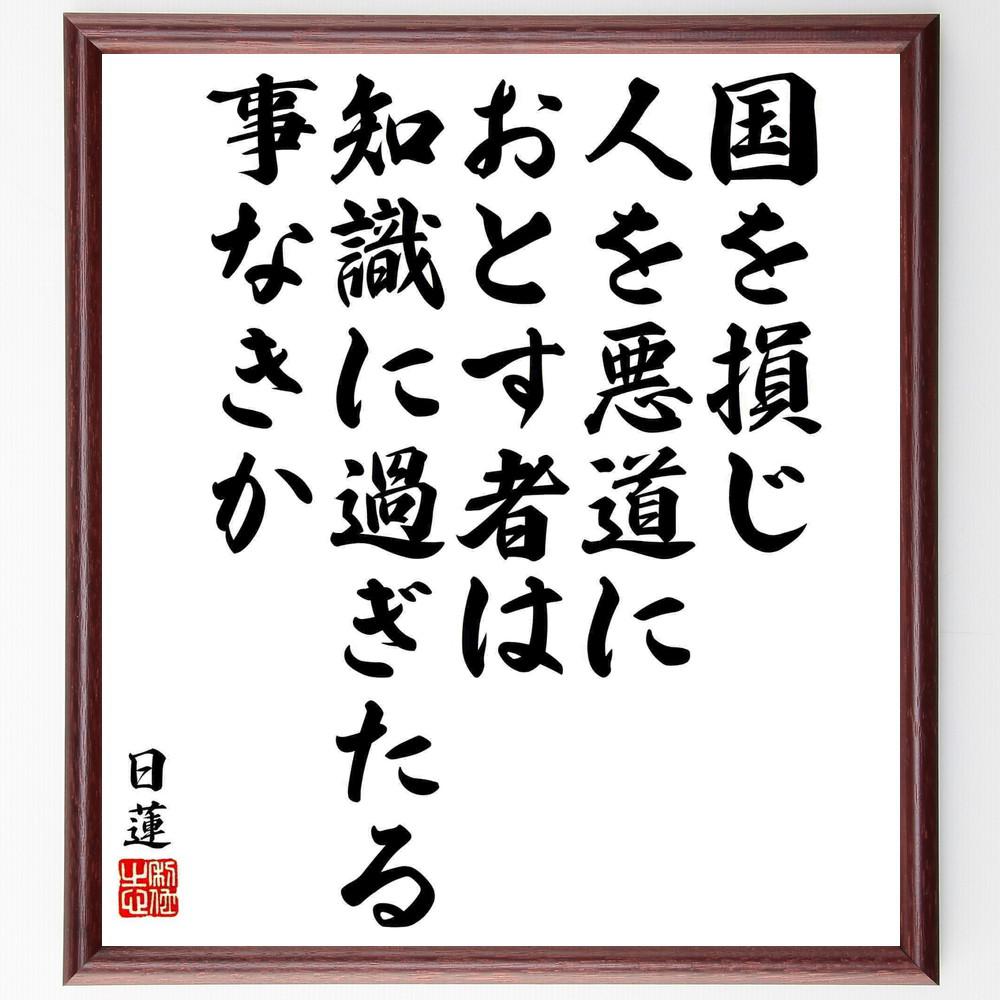 国を損じ
人を悪道に
おとす者は
知識に過ぎたる
事なきか
日蓮